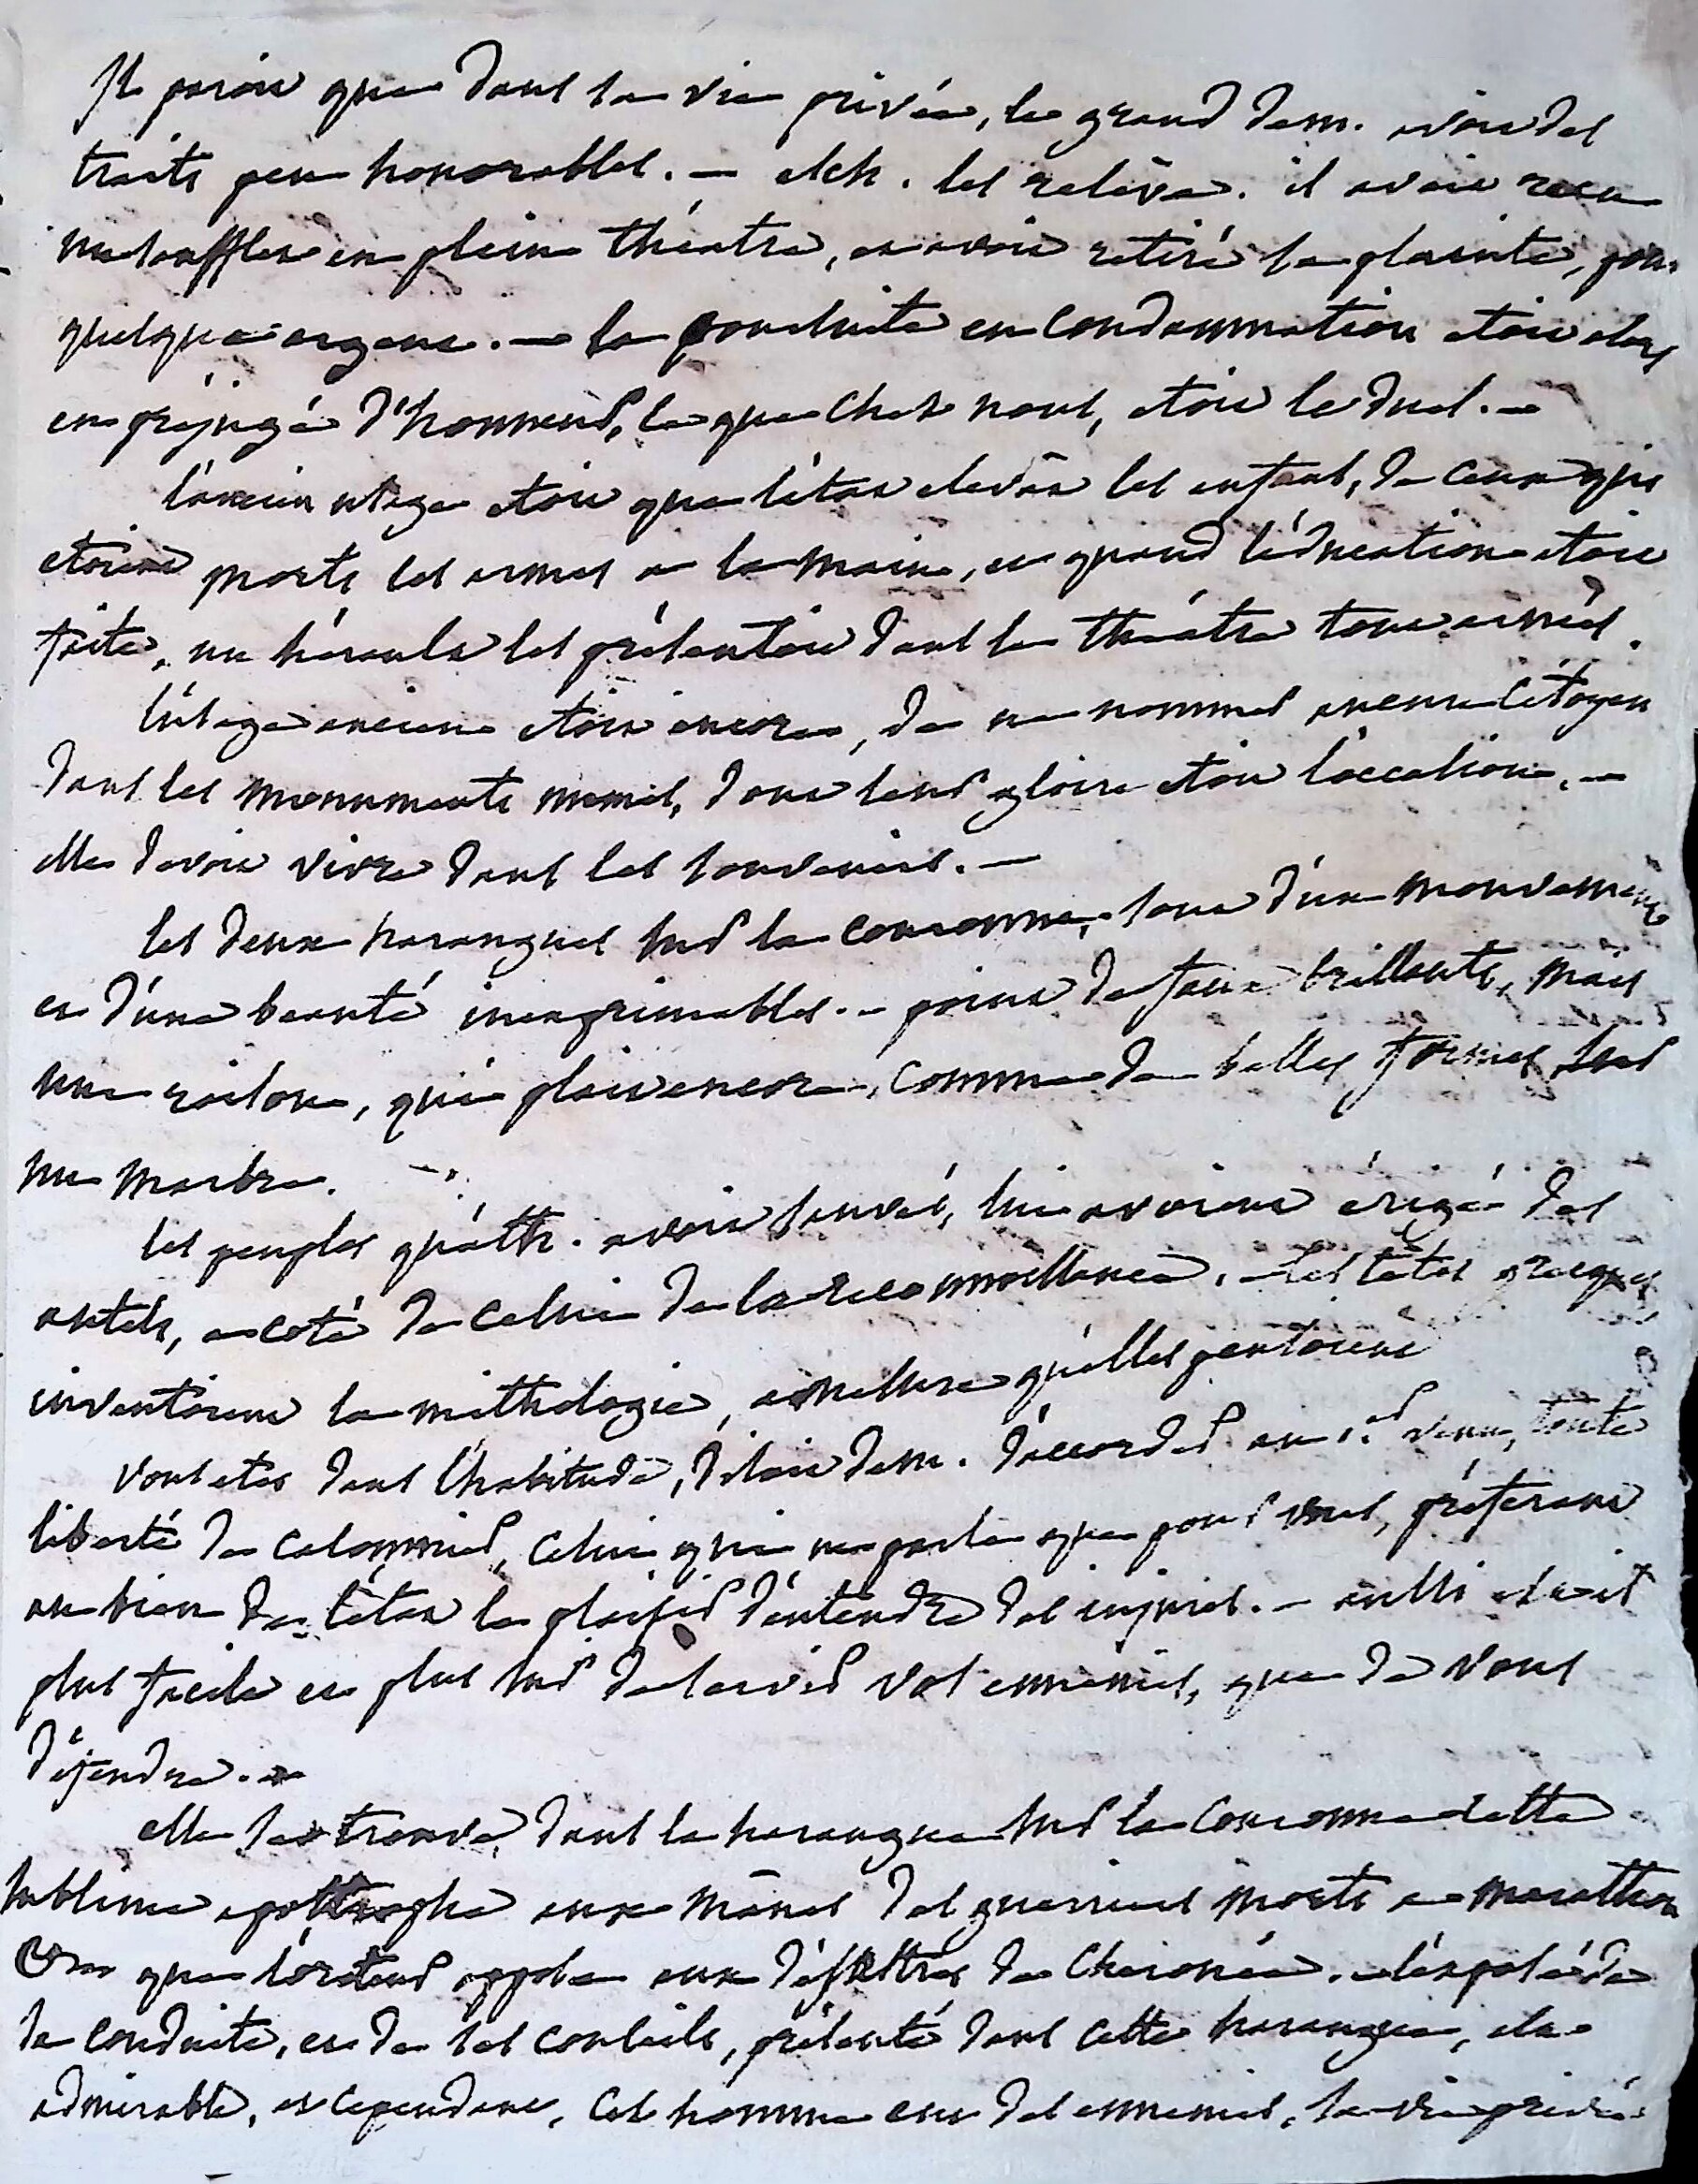 Il paroit que dans sa vie privée, le grand Dem. avoit des
traits peu honorables. — esch. les relève. il avoit reçu
un soufflet en plein théatre, et avoit retiré sa plainte, pour
quelque argent. — la poursuite en condamnation etoit alors
en préjugé d'honneur, ce que chez nous, etoit le duel. —
l'ancien usage etoit que l'état elevat les enfans, de ceux qui
etoient morts les armes a la main, et quand l'éducation etoit
faite, un héraut les présentoit dans le théatre tout armés.
l'usage ancien etoit encore, de ne nommer aucun citoyen
dans les monuments memes, dont leur gloire etoit l'occasion. —
elle devoit vivre dans les souvenirs. —
les deux harangues sur la couronne, sont d'un mouvement
et d'une beauté inexprimables. — point de faux brillants, mais
une raison, qui plait encore, comme de belles formes sur
un marbre. —
les peuples qu'ath. avoit sauvés, lui avoient érigé des
autels, a coté de celui de la reconnoissance. — les têtes grecques
inventoient la mithologie, a mesure qu'elles pensoient
vous etes dans l'habitude, disoit dem. d'accorder au 1.er venu, toute
liberté de calomnier, celui qui ne parle que pour vous, préférant
au bien de l'état le plaisir d'entendre des injures. — aussi est-il
plus facile et plus sur de servir vos ennemis, que de vous
défendre. —
elle se trouve, dans la harangue sur la couronne cette
sublime apostrophe aux mânes des guerriers morts a marathon
que l'orateur oppose aux désastres de Cheronée. — l'exposé de
sa conduite, et de ses conseils, présenté dans cette harangue, est
admirable, et cependant, cet homme eut des ennemis, sa vie privée